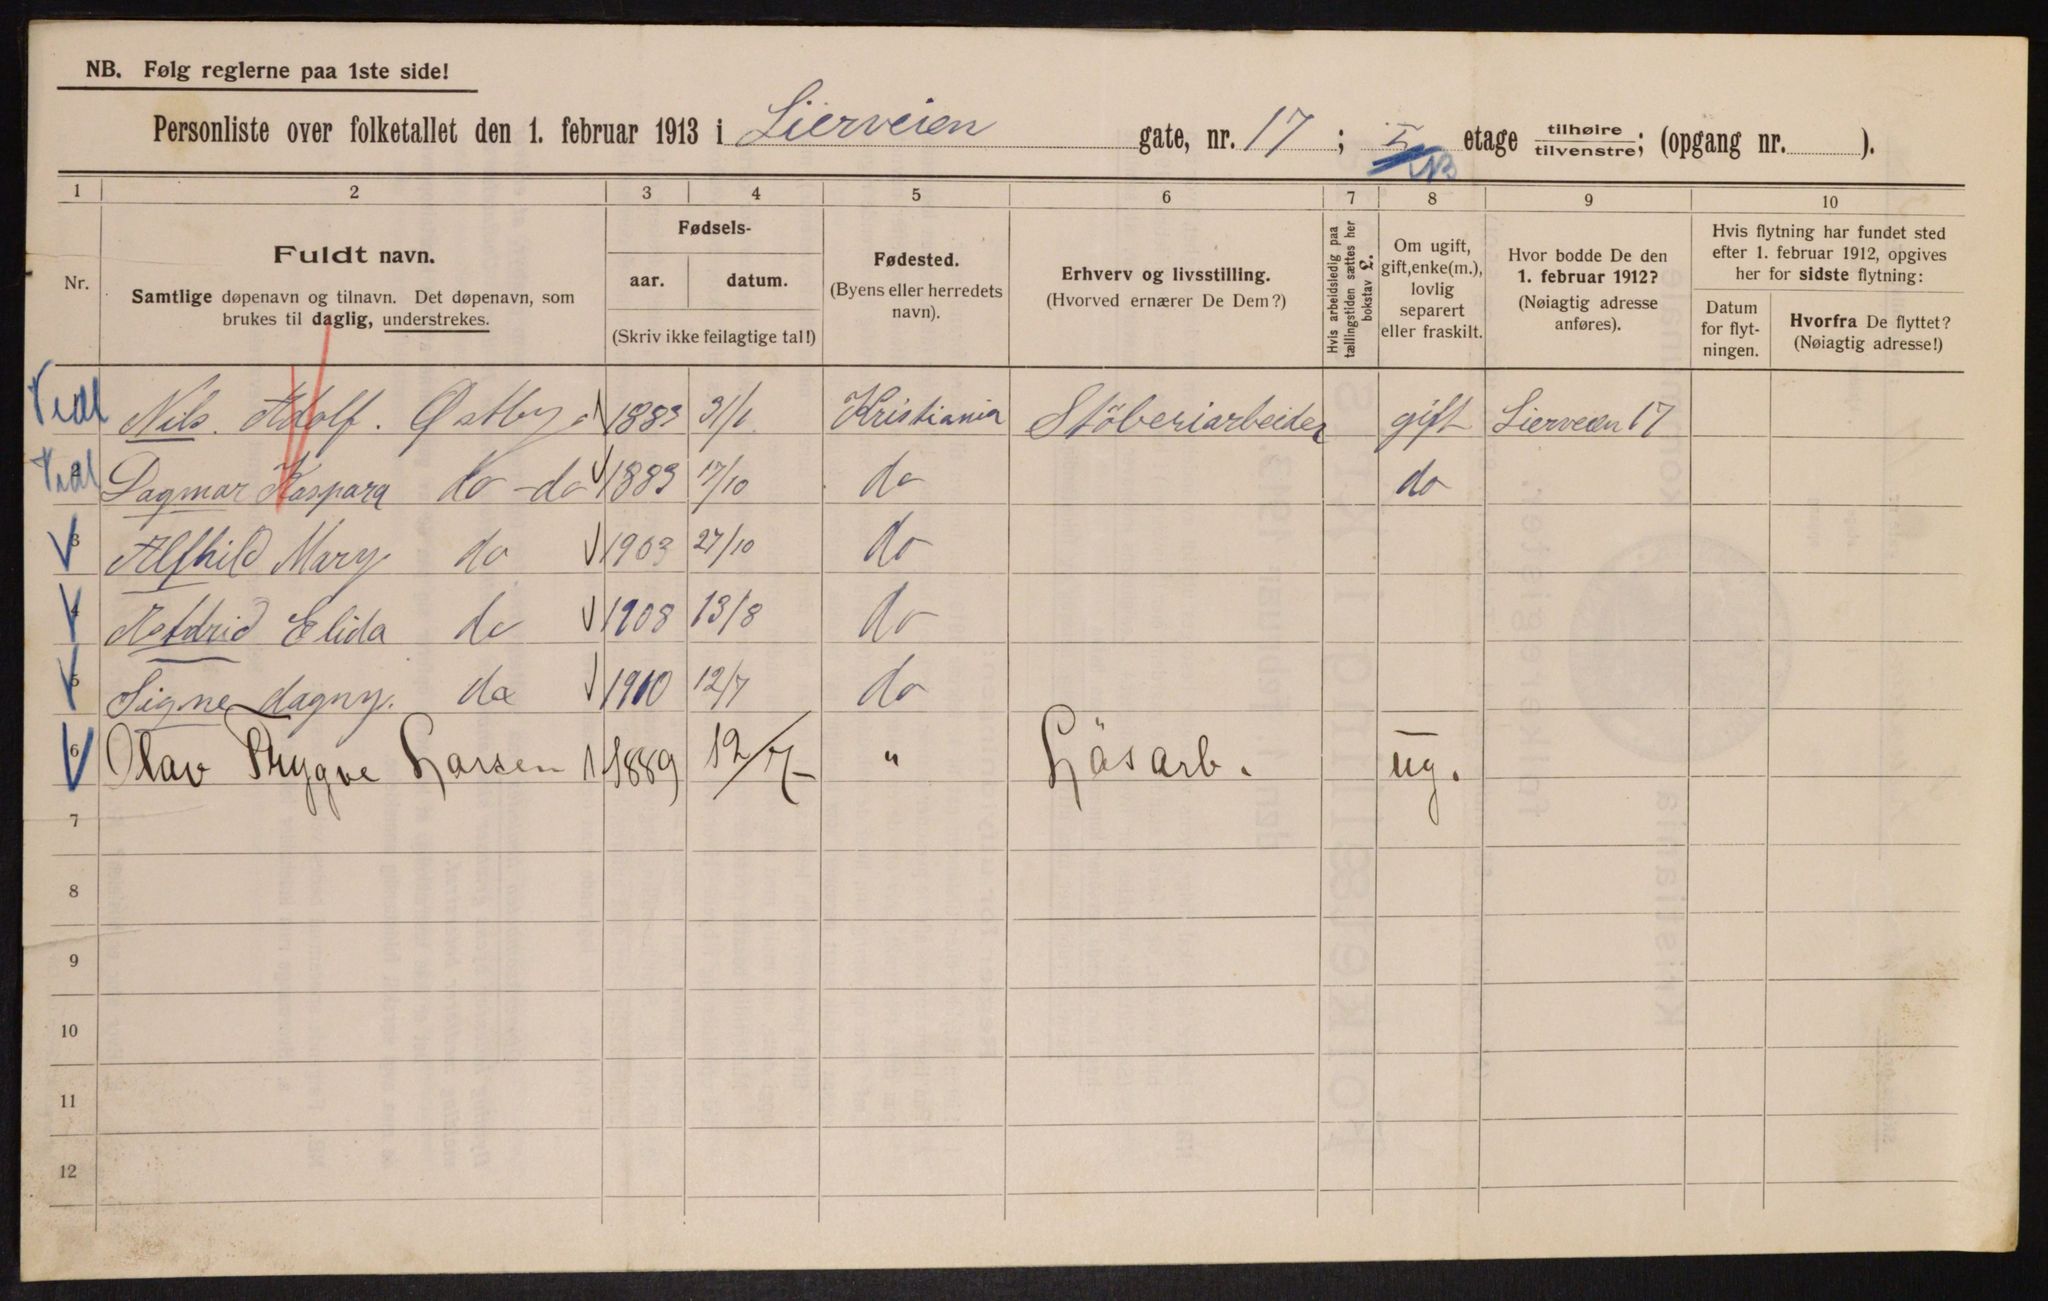 NB. Følg reglerne paa 1ste side!
Personliste over folketallet den 1. februar 1913 i Lierveien gate, nr. 17; I etage tilhøire/tilvenstre; (opgang nr. ).
NB
1 2 3 4 5 6 7 8 9 10
Nr.
Fuldt navn.
Samtlige døpenavn og tilnavn. Det døpenavn, som
brukes til daglig, understrekes.
Fødsels-
aar. datum.
(Skriv ikke feilagtige tal!)
Fødested.
(Byens eller herredets
navn).
Erhverv og livsstilling.
(Hvorved ernærer De Dem?)
Hvis arbeidsledig paa
tællingstiden sættes her
bokstav £.
Om ugift,
gift, enke(m.),
lovlig
separert
eller fraskilt.
Hvor bodde De den
1. februar 1912?
(Nøiagtig adresse
anføres).
Hvis flytning har fundet sted
efter 1. februar 1912, opgives
her for sidste flytning:
Datum
for flyt-
ningen.
Hvorfra De flyttet?
(Nøiagtig adresse!)
Nils. Adolf. Østby 1883 31/1 Kristiania Stöberiarbeider gift Lierveien 17
Dagmar Kaspara do -do 1883 17/10 do do
3 Alfhild Mary do 1903 27/10 do
4 Astdrid Elida do 1908 13/8 do
5 Signe dagny. do 1910 12/7 do
6 Olav Trygve Larsen 1889 12/7 " Lösarb. ug.
7
8
9
10
11
12